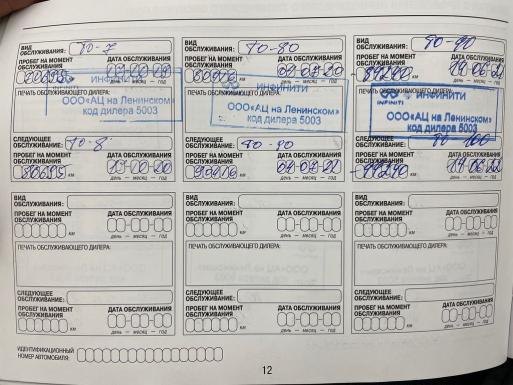 ВИД ОБСЛУЖИВАНИЯ: ТО-7
ПРОБЕГ НА МОМЕНТ ОБСЛУЖИВАНИЯ
ДАТА ОБСЛУЖИВАНИЯ
км
день — месяц — год
ПЕЧАТЬ ОБСЛУЖИВАЮЩЕГО ДИЛЕРА:
ИНФИНИТИ
ООО«АЦ на Ленинском»
код дилера 5003
СЛЕДУЮЩЕЕ ОБСЛУЖИВАНИЕ: ТО-8
ПРОБЕГ НА МОМЕНТ ОБСЛУЖИВАНИЯ
ДАТА ОБСЛУЖИВАНИЯ
км
день — месяц — год
ВИД ОБСЛУЖИВАНИЯ: ТО-80
ПРОБЕГ НА МОМЕНТ ОБСЛУЖИВАНИЯ
ДАТА ОБСЛУЖИВАНИЯ
км
день — месяц — год
ПЕЧАТЬ ОБСЛУЖИВАЮЩЕГО ДИЛЕРА:
ИНФИНИТИ
ООО«АЦ на Ленинском»
код дилера 5003
СЛЕДУЮЩЕЕ ОБСЛУЖИВАНИЕ: ТО-90
ПРОБЕГ НА МОМЕНТ ОБСЛУЖИВАНИЯ
ДАТА ОБСЛУЖИВАНИЯ
км
день — месяц — год
ВИД ОБСЛУЖИВАНИЯ: ТО-90
ПРОБЕГ НА МОМЕНТ ОБСЛУЖИВАНИЯ
ДАТА ОБСЛУЖИВАНИЯ
км
день — месяц — год
ПЕЧАТЬ ОБСЛУЖИВАЮЩЕГО ДИЛЕРА:
INFINITI
ИНФИНИТИ
ООО«АЦ на Ленинском»
код дилера 5003
СЛЕДУЮЩЕЕ ОБСЛУЖИВАНИЕ: ТО-100
ПРОБЕГ НА МОМЕНТ ОБСЛУЖИВАНИЯ
ДАТА ОБСЛУЖИВАНИЯ
км
день — месяц — год
ВИД ОБСЛУЖИВАНИЯ:
ПРОБЕГ НА МОМЕНТ ОБСЛУЖИВАНИЯ
ДАТА ОБСЛУЖИВАНИЯ
км
день — месяц — год
ПЕЧАТЬ ОБСЛУЖИВАЮЩЕГО ДИЛЕРА:
СЛЕДУЮЩЕЕ ОБСЛУЖИВАНИЕ:
ПРОБЕГ НА МОМЕНТ ОБСЛУЖИВАНИЯ
ДАТА ОБСЛУЖИВАНИЯ
км
день — месяц — год
ВИД ОБСЛУЖИВАНИЯ:
ПРОБЕГ НА МОМЕНТ ОБСЛУЖИВАНИЯ
ДАТА ОБСЛУЖИВАНИЯ
км
день — месяц — год
ПЕЧАТЬ ОБСЛУЖИВАЮЩЕГО ДИЛЕРА:
СЛЕДУЮЩЕЕ ОБСЛУЖИВАНИЕ:
ПРОБЕГ НА МОМЕНТ ОБСЛУЖИВАНИЯ
ДАТА ОБСЛУЖИВАНИЯ
км
день — месяц — год
ВИД ОБСЛУЖИВАНИЯ:
ПРОБЕГ НА МОМЕНТ ОБСЛУЖИВАНИЯ
ДАТА ОБСЛУЖИВАНИЯ
км
день — месяц — год
ПЕЧАТЬ ОБСЛУЖИВАЮЩЕГО ДИЛЕРА:
СЛЕДУЮЩЕЕ ОБСЛУЖИВАНИЕ:
ПРОБЕГ НА МОМЕНТ ОБСЛУЖИВАНИЯ
ДАТА ОБСЛУЖИВАНИЯ
км
день — месяц — год
ИДЕНТИФИКАЦИОННЫЙ
НОМЕР АВТОМОБИЛЯ:
12